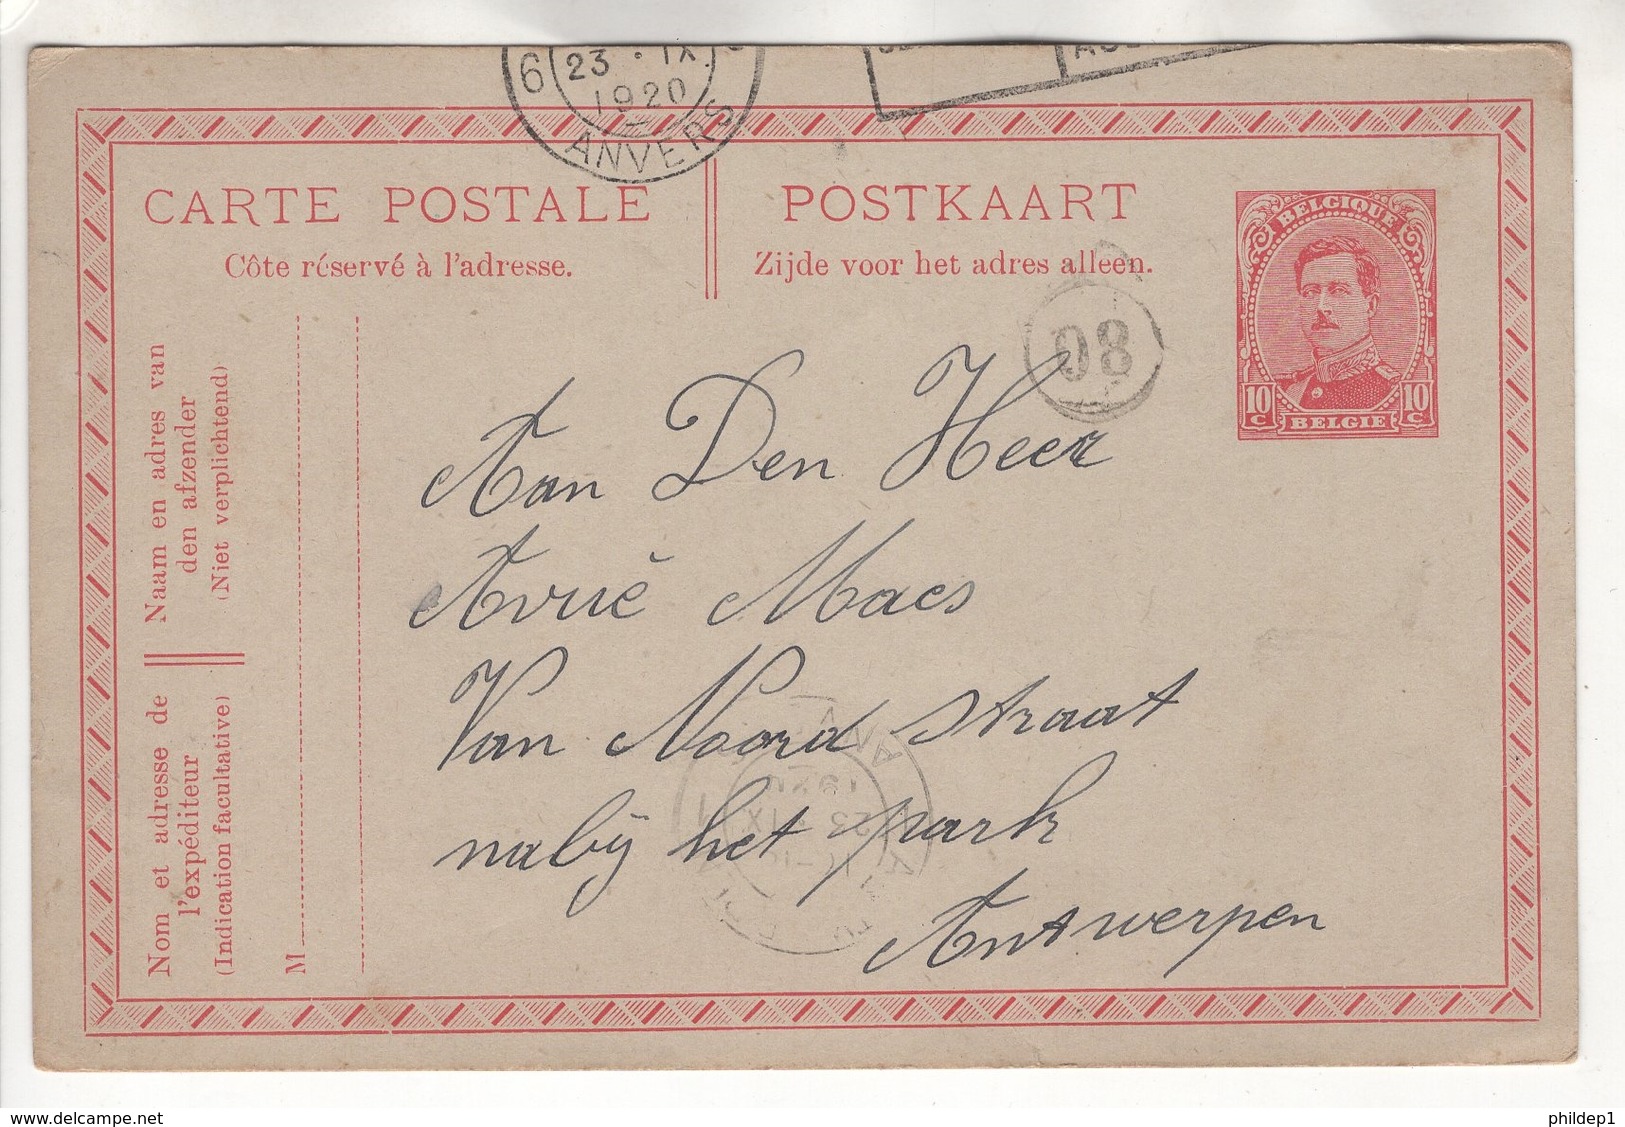 6 23 · IX. 1920
ANVERS
CARTE POSTALE
Côte réservé à l'adresse.
POSTKAART
Zijde voor het adres alleen.
BELGIQUE
10 C 10 C
BELGIE
08
Naam en adres van
den afzender
(Niet verplichtend)
Nom et adresse de
l'expéditeur
(Indication facultative)
M
Aan Den Heer
Maes
Van Noord straat
nabÿ het park
Antwerpen
23 IX
1920
delcampe.net
phildep1